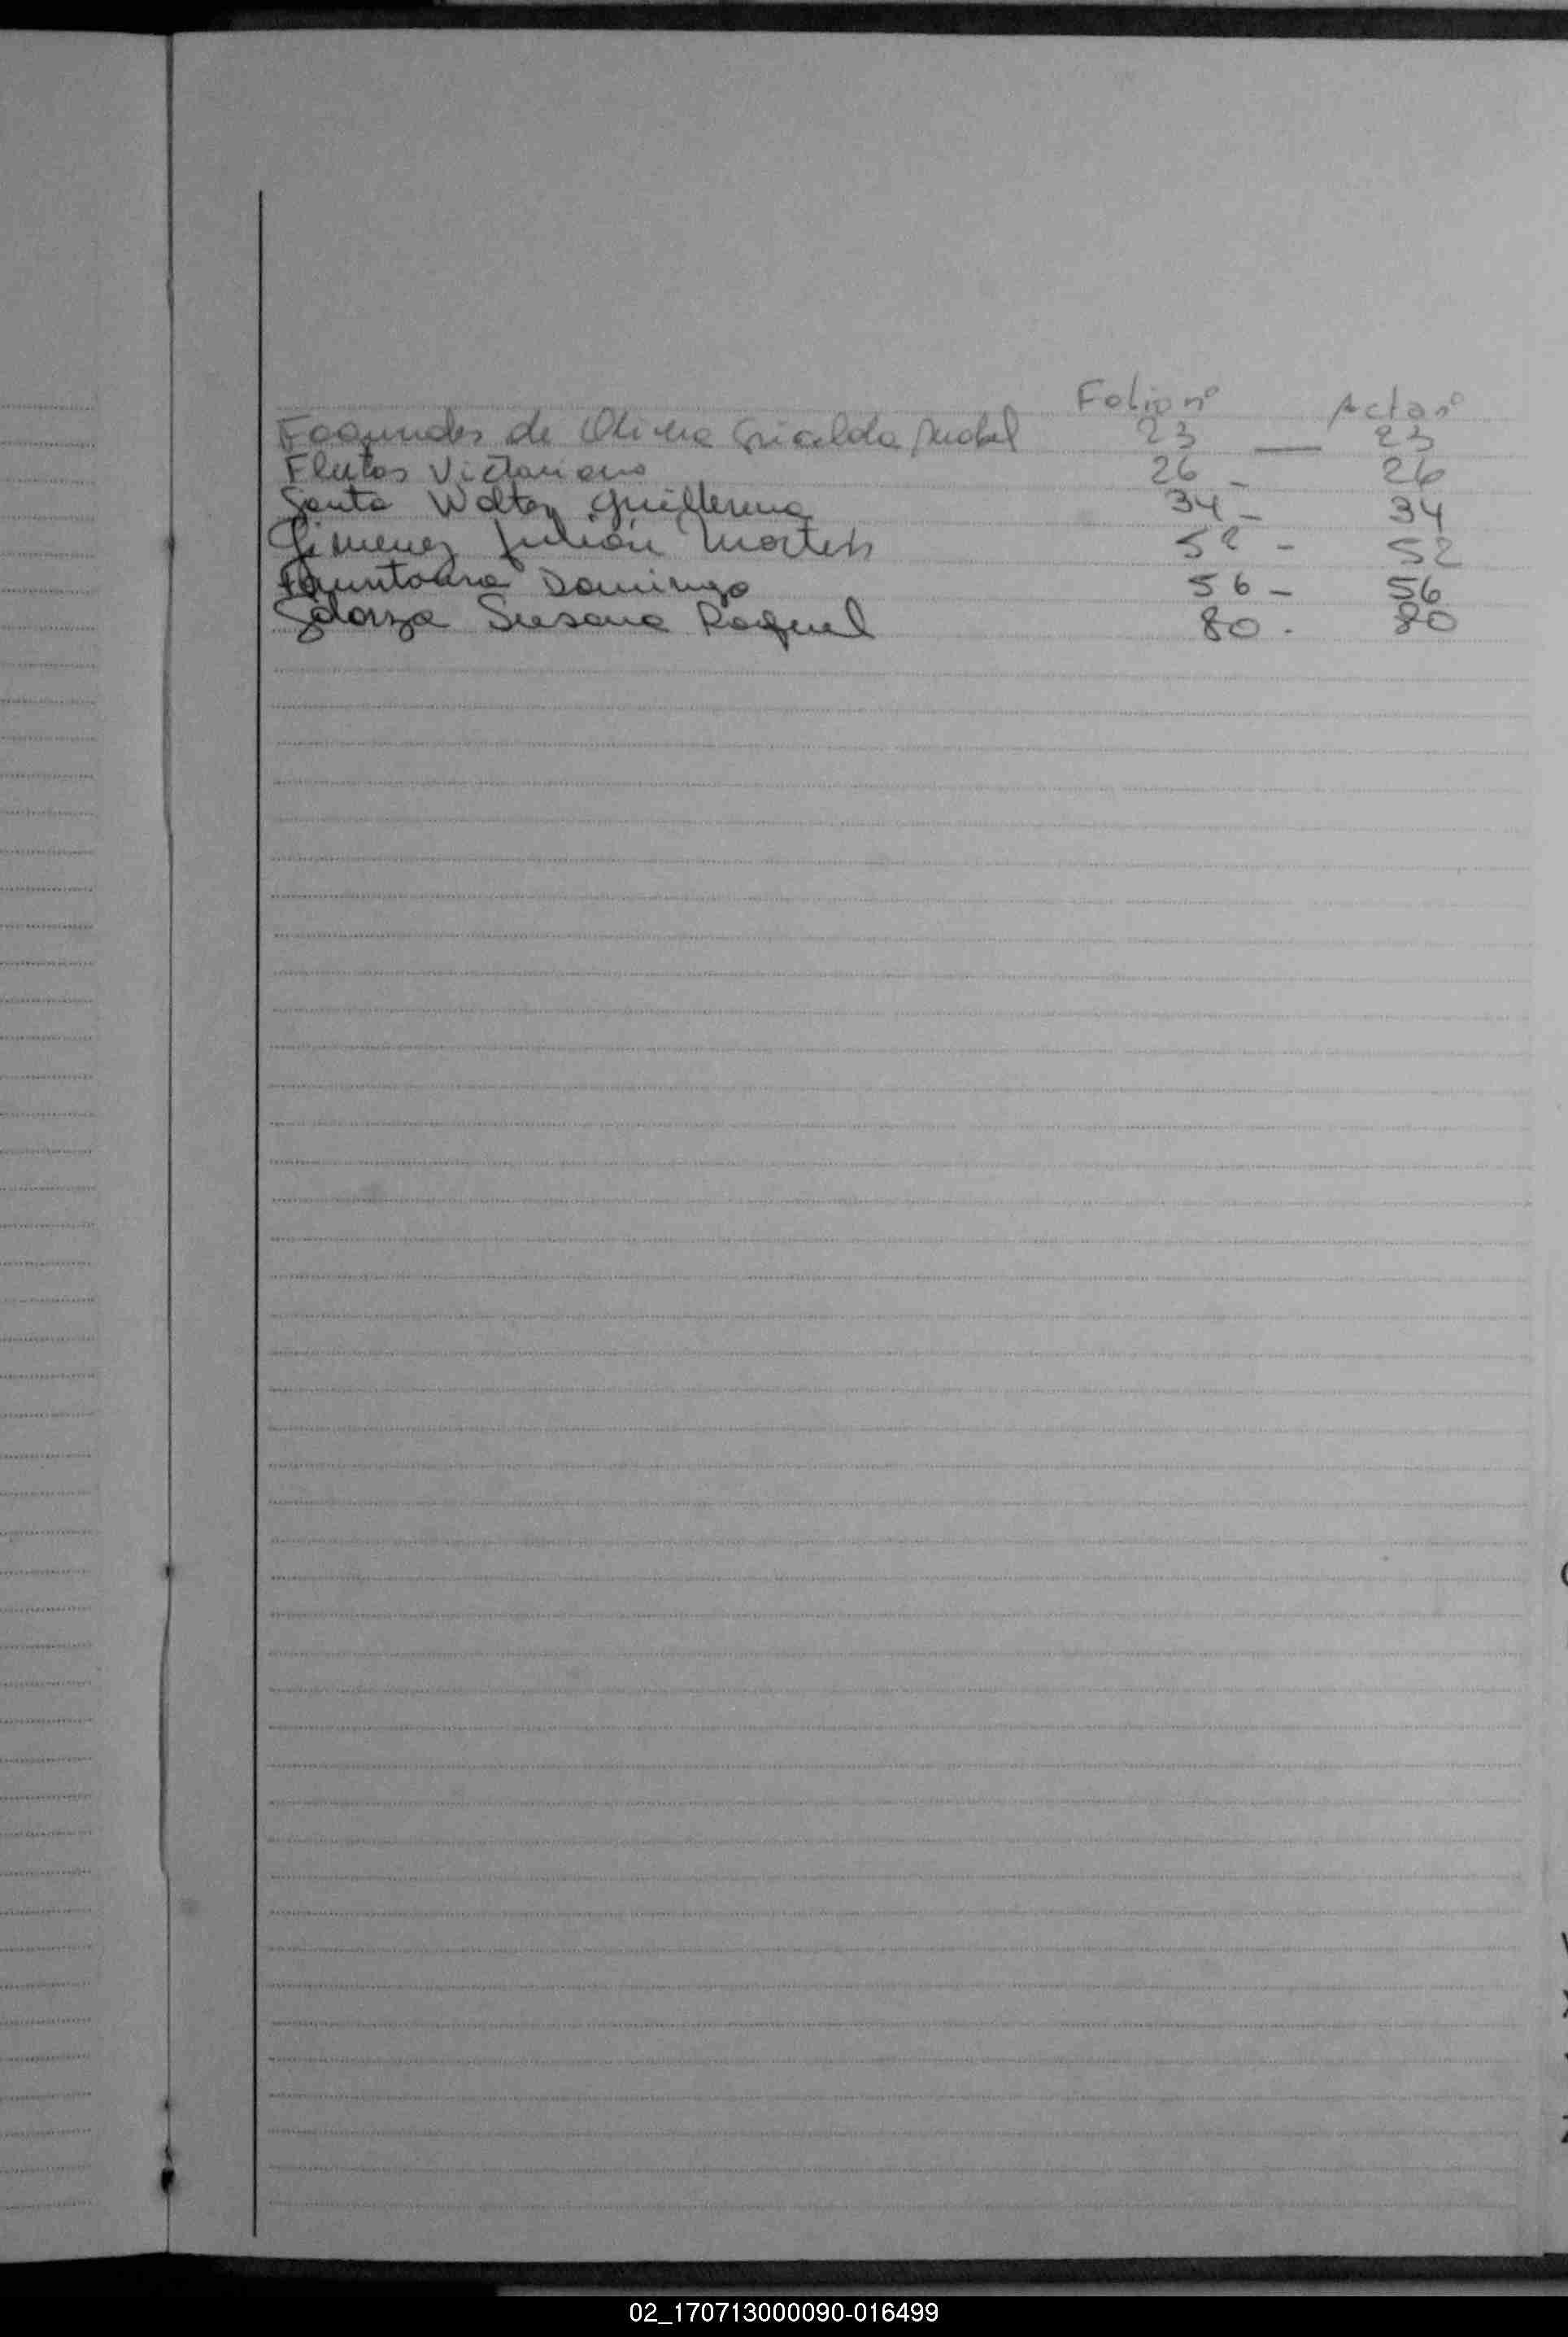 Folio nº Acta nº
Fagundes de Olivera Griselda Mabel 23 — 23
Fleitas Victoriano 26 - 26
Santa Walter Guillermo 34 - 34
Gimenez Julián Martin 52 - 52
Domingo 56 - 56
Galarza Susana Raquel 80 . 80
02_170713000090-016499